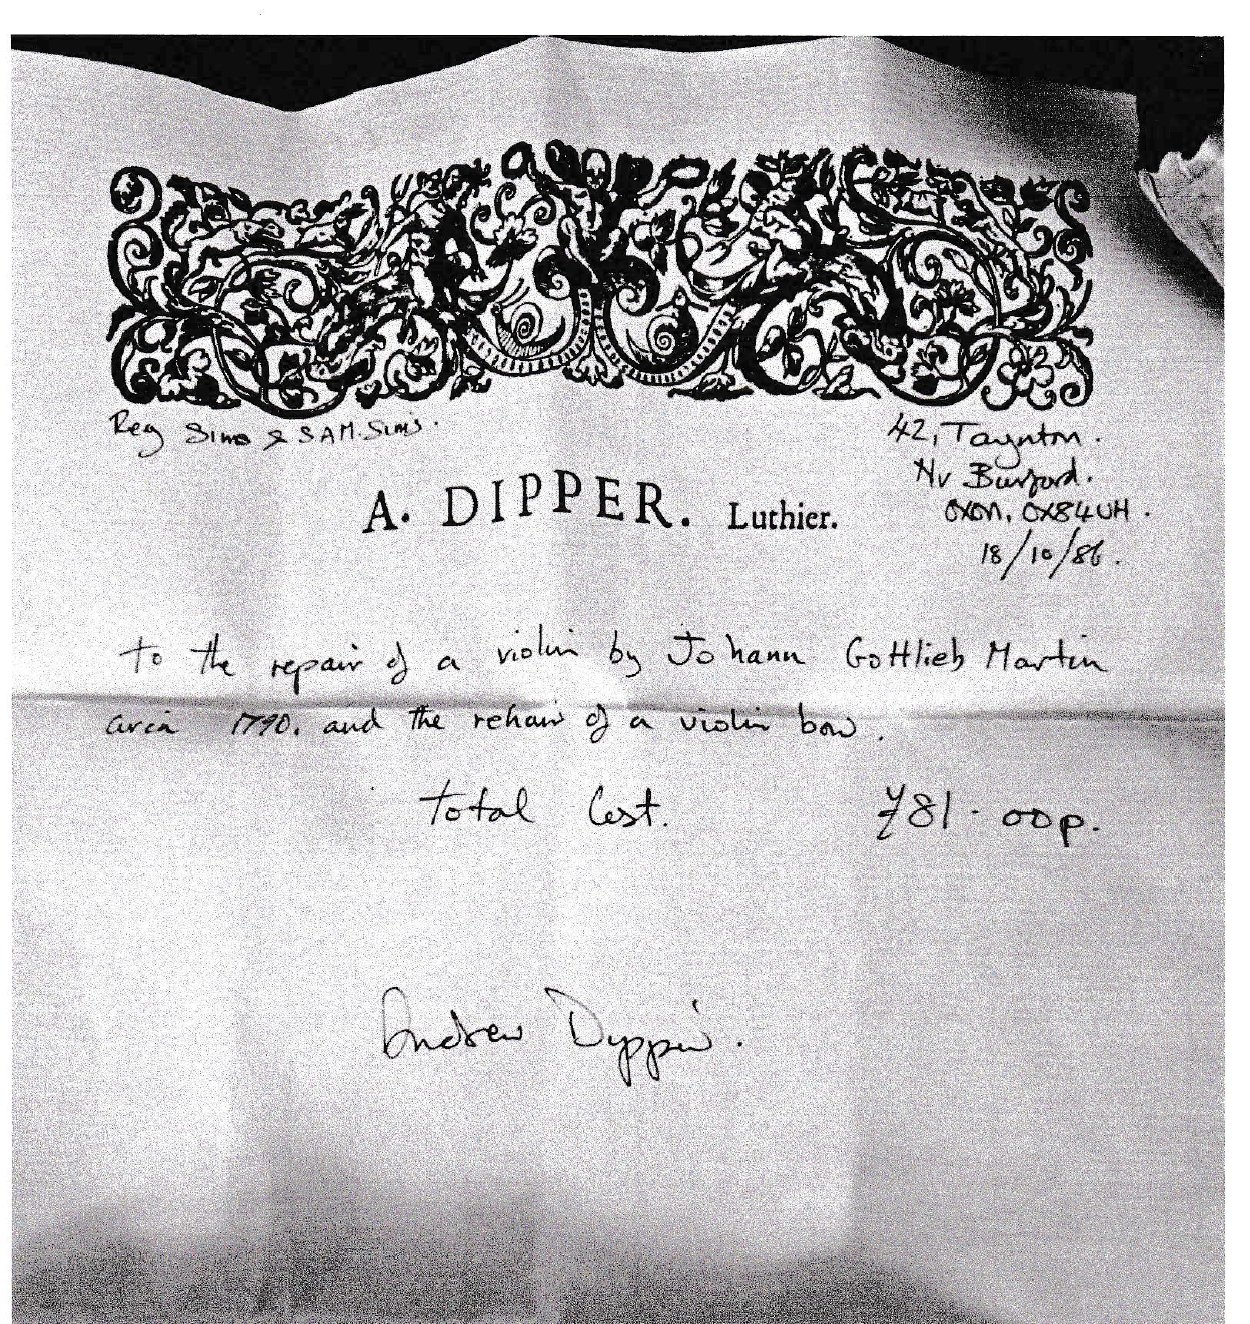 Reg Sims & SAM. Sims.
42, Taynton.
Nr Burford.
OXON, OX84UH.
18/10/86.
A. DIPPER. Luthier.
to the repair of a violin by Johann Gottlieb Martin
circa 1790. and the rehair of a violin bow.
total Cost. £81-00p.
Andrew Dipper.